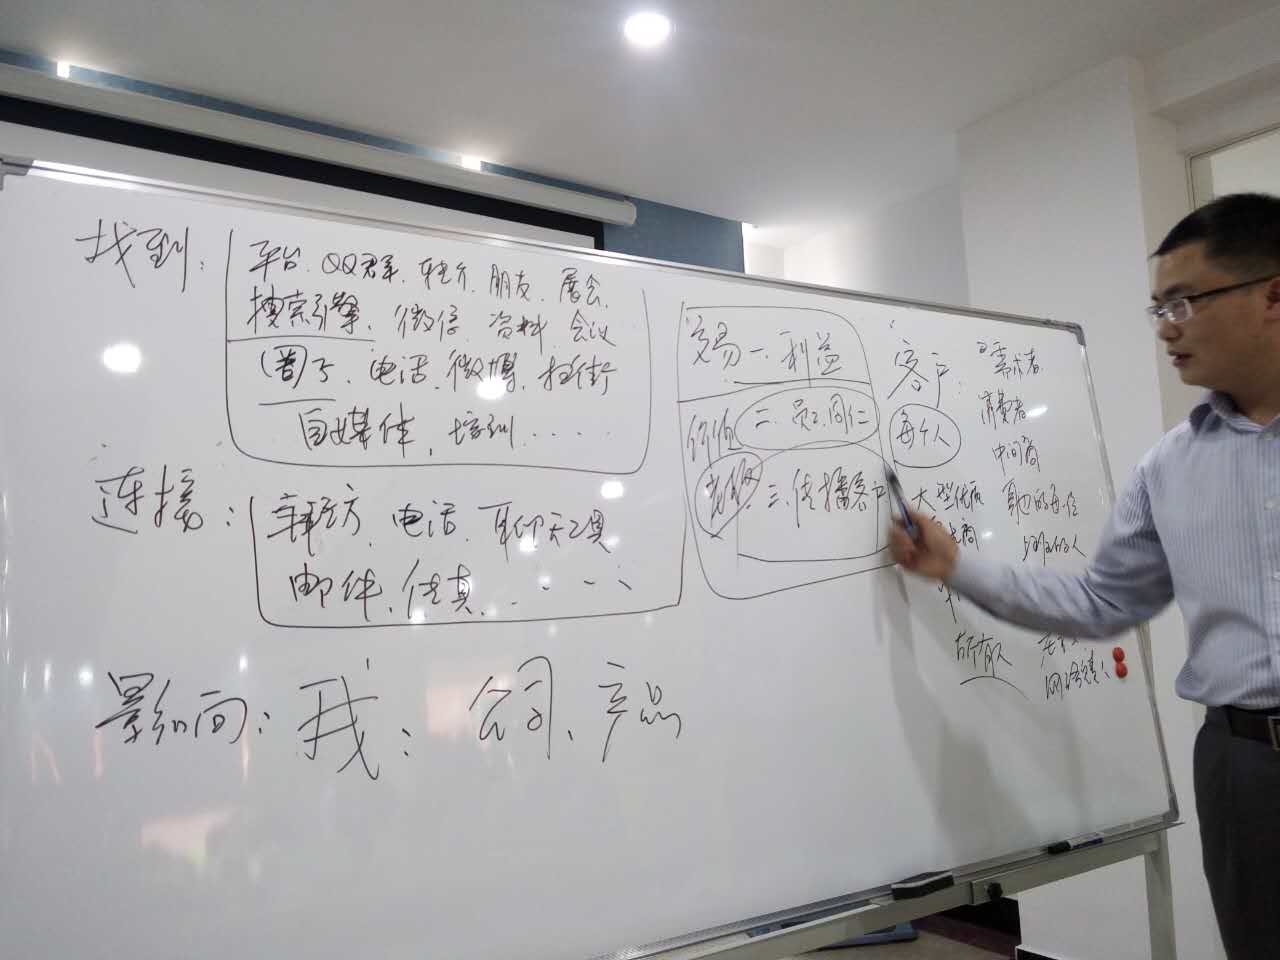 找到：
平台、QQ群、转介、朋友、展会、
搜索引擎、微信、资料、会议
圈子、电话、微博、扫街
自媒体、培训......
连接：
电话、聊天工具
邮件、传真、......
影响：我：公司、产品
交易 一、利益
价值 二、员工同仁
三、传播客户
客户：
每个人
大型优质
所有人
需求者
消费者
中间商